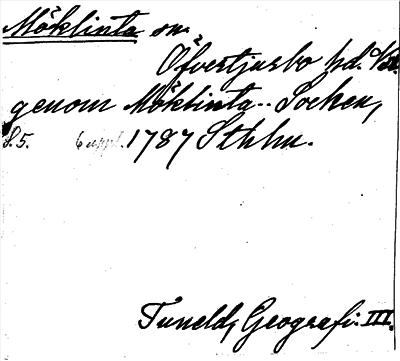 Möklinta sn.
Öfvertjurbo hd.
genom Möklinta- Socken,
S. 5. 6 uppl. 1787 Sthlm.
Tuneld, Geografi. III.